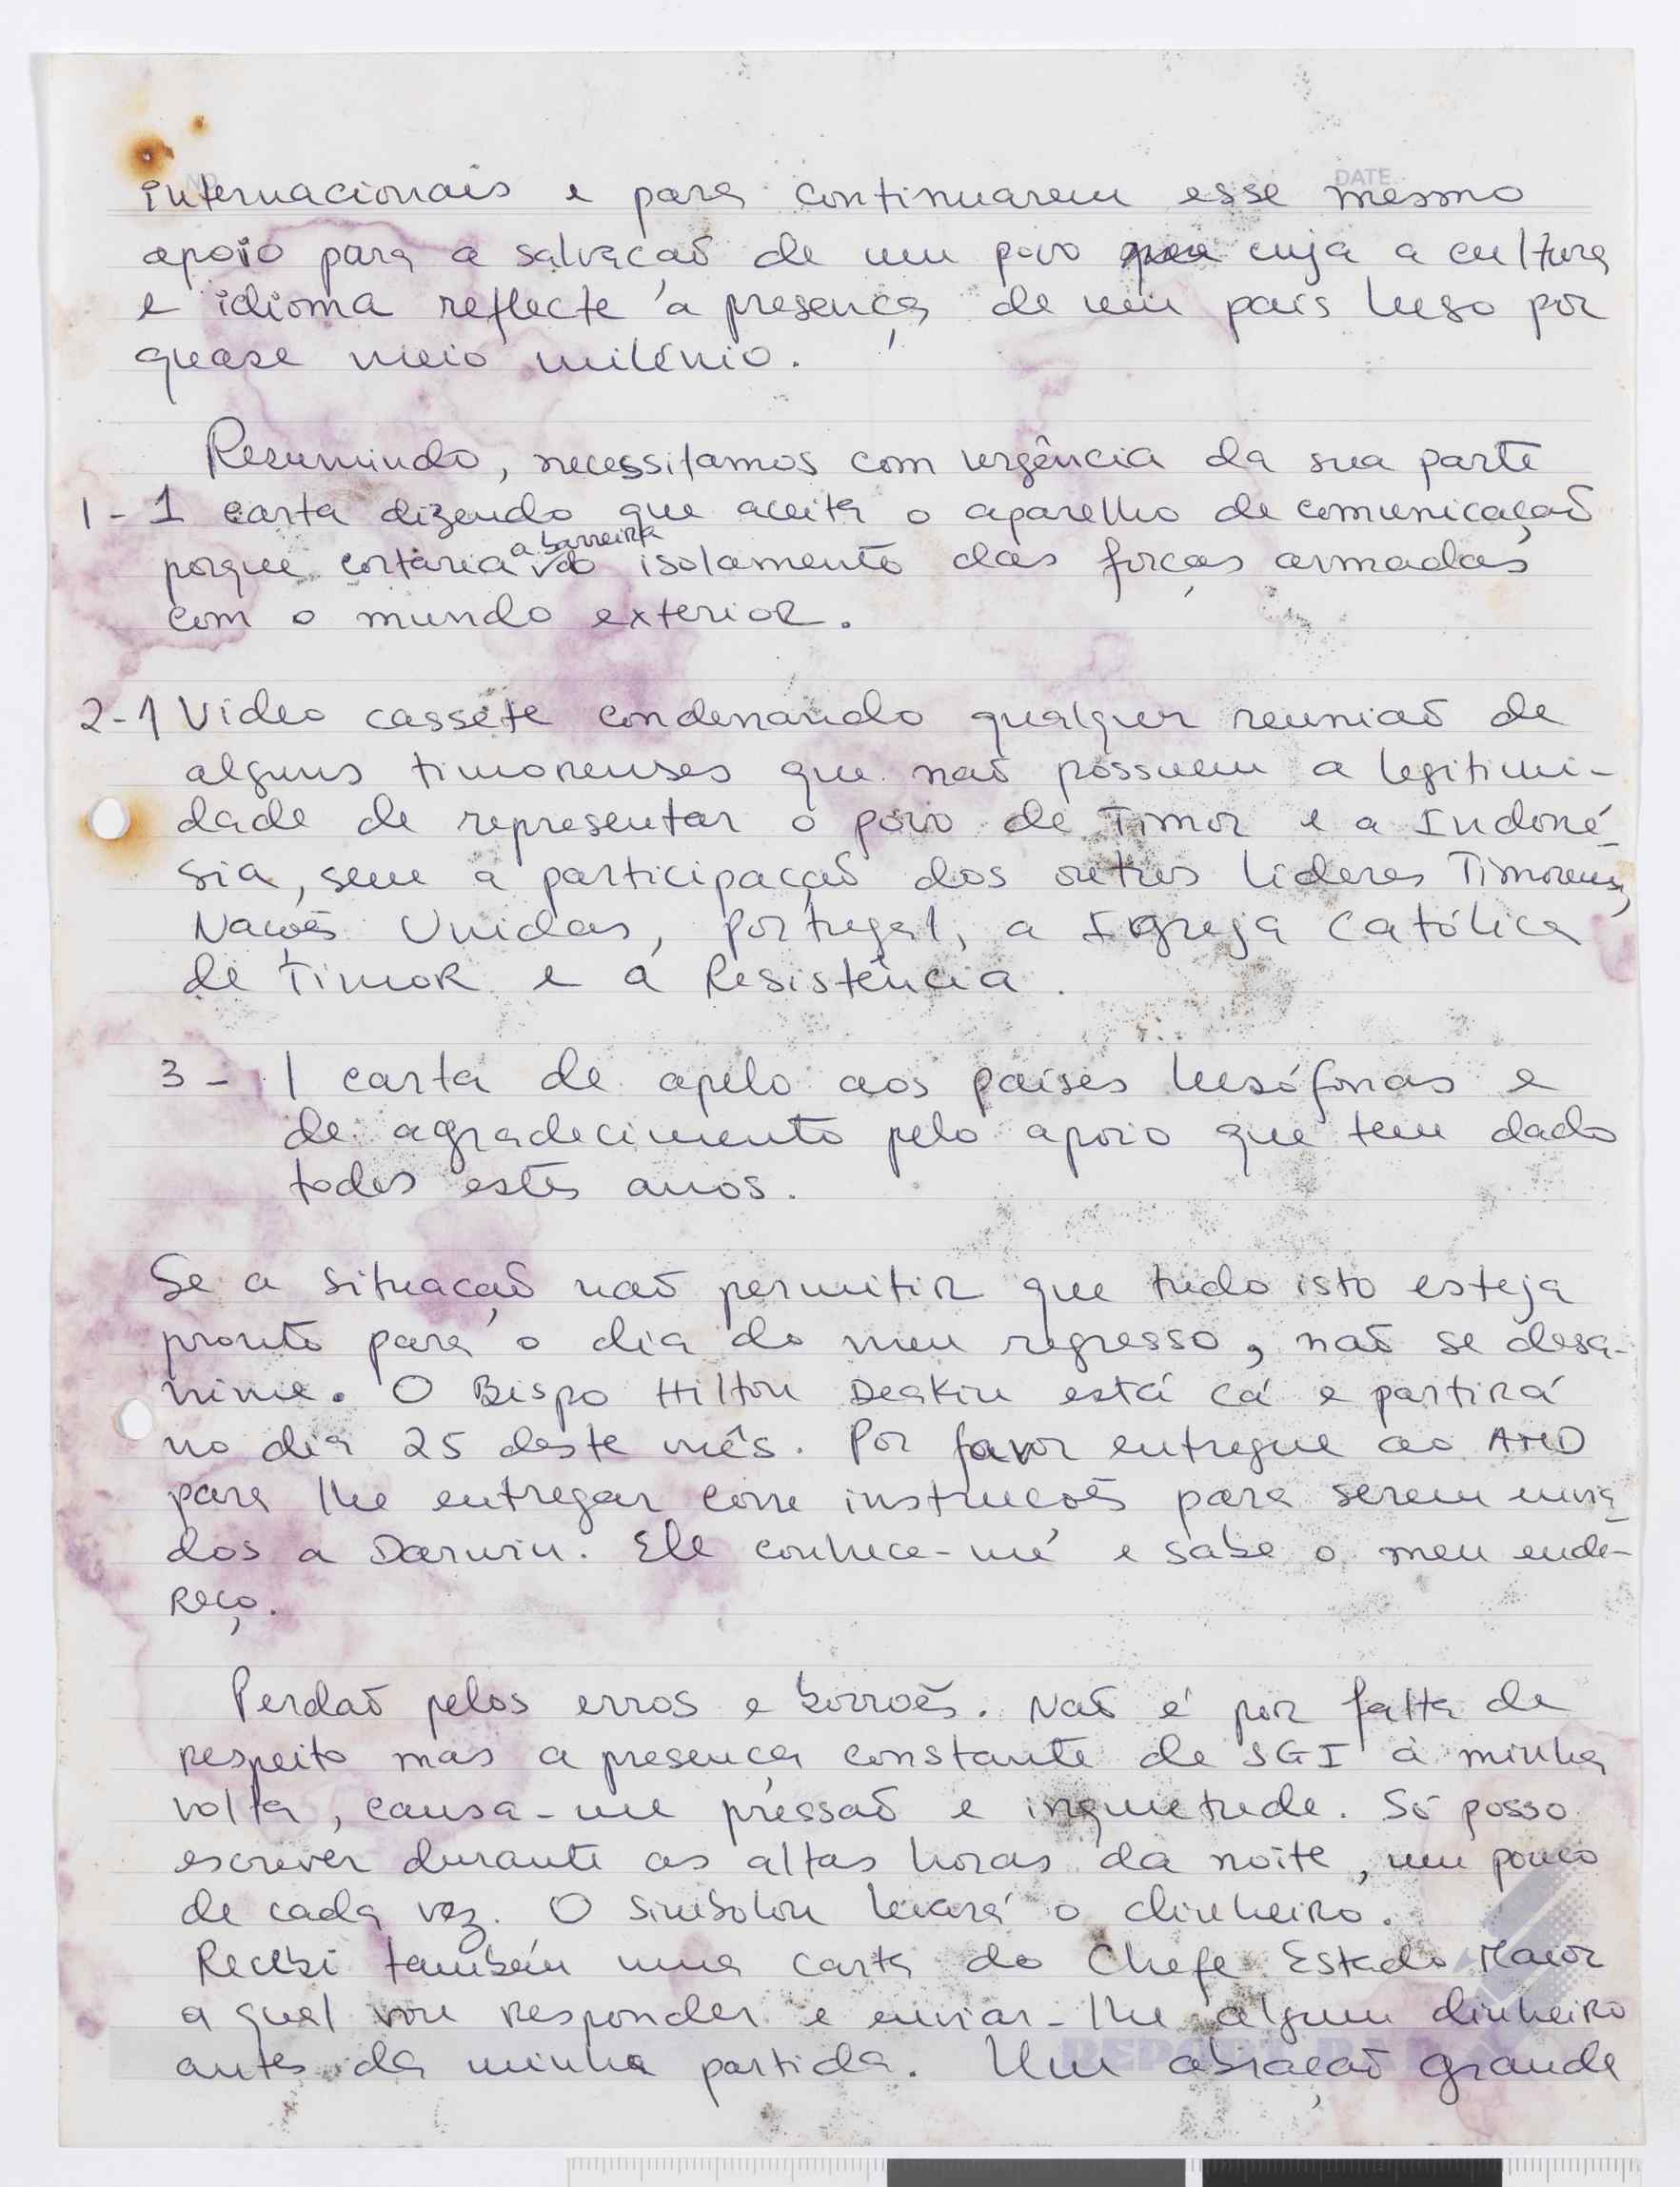 DATE
internacionais e para continuarem esse mesmo
apoio para a salvação de um povo cuja a cultura
e idioma reflecte a presença de um país luso por
quase meio milénio.
Resumindo, necessitamos com urgência da sua parte
1 - 1 carta dizendo que aceita o aparelho de comunicação
porque cortaria a barreira do isolamento das forças armadas
com o mundo exterior.
2 - 1 Video cassete condenando qualquer reunião de
alguns timorenses que não possuem a legitimi-
dade de representar o povo de Timor e a Indoné-
sia, sem a participação dos outros líderes Timorenses,
Nações Unidas, Portugal, a Igreja Católica
de Timor e a Resistência.
3 - 1 carta de apelo aos países lusófonas e
de agradecimento pelo apoio que tem dado
todos estes anos.
Se a situação não permitir que tudo isto esteja
pronto para o dia do meu regresso, não se desa-
nime. O Bispo Hilton Deakin está cá e partirá
no dia 25 deste mês. Por favor entregue ao AMD
para lhe entregar com instruções para serem envia-
dos a Darwin. Ele conhece-me e sabe o meu ende-
reço.
Perdão pelos erros e borrões. Não é por falta de
respeito mas a presença constante de SGI à minha
volta, causa-me pressão e inquietude. Só posso
escrever durante as altas horas da noite, um pouco
de cada vez. O Simbolon levará o dinheiro.
Recebi também uma carta do Chefe Estado Maior
a qual vou responder e enviar-lhe algum dinheiro
antes da minha partida. Um abração grande